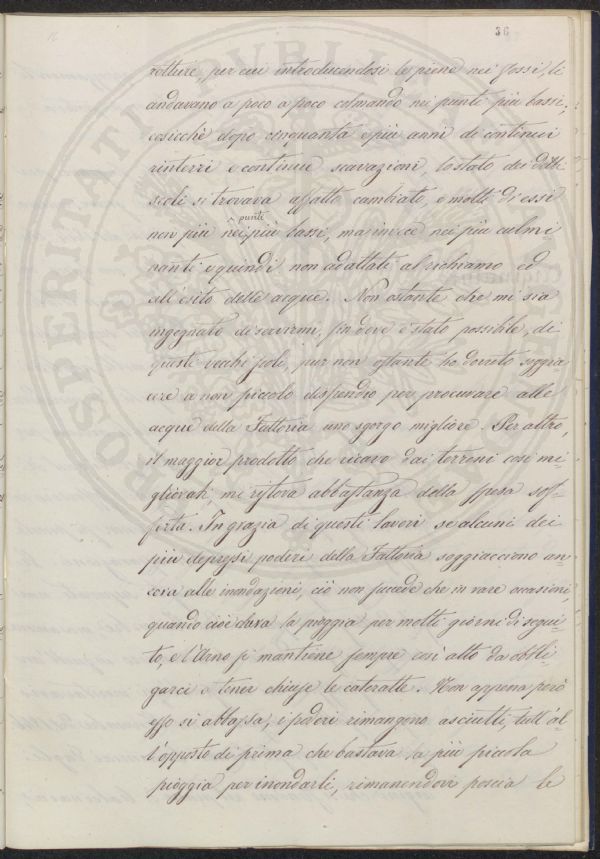 36
rotture, per cui introducendosi le piene nei fossi, li
andavano a poco a poco colmando nei punti più bassi;
cosicchè dopo cinquanta e più anni di continui
rinterri e continue scavazioni, lo stato dei detti
scoli si trovava affatto cambiato, e molti di essi
non più nei punti più bassi, ma invece nei più culmi
nanti e quindi non adattati al richiamo ed
all'esito delle acque. Non ostante che mi sia
ingegnato di servirmi, fin dove è stato possibile, di
questi vecchi scoli, pur non ostante ho dovuto soggia
cere a non piccolo dispendio per procurare alle
acque della Fattoria uno sgorgo migliore. Per altro,
il maggior prodotto che ricavo dai terreni così mi-
gliorati, mi ristora abbastanza della spesa sof-
ferta. In grazia di questi lavori se alcuni dei
più depressi poderi della Fattoria soggiacciono an-
cora alle inondazioni, ciò non succede che in rare occasioni,
quando cioè dura la pioggia per molti giorni di segui-
to, e l'Arno si mantiene sempre così alto da obbli-
garci a tener chiuse le cateratte. Non appena però
esso si abbassa, i poderi rimangono asciutti, tutt'al-
l'opposto di prima che bastava la più piccola
pioggia per inondarli, rimanendovi poscia le
PROSPERITATI PUBLICAE